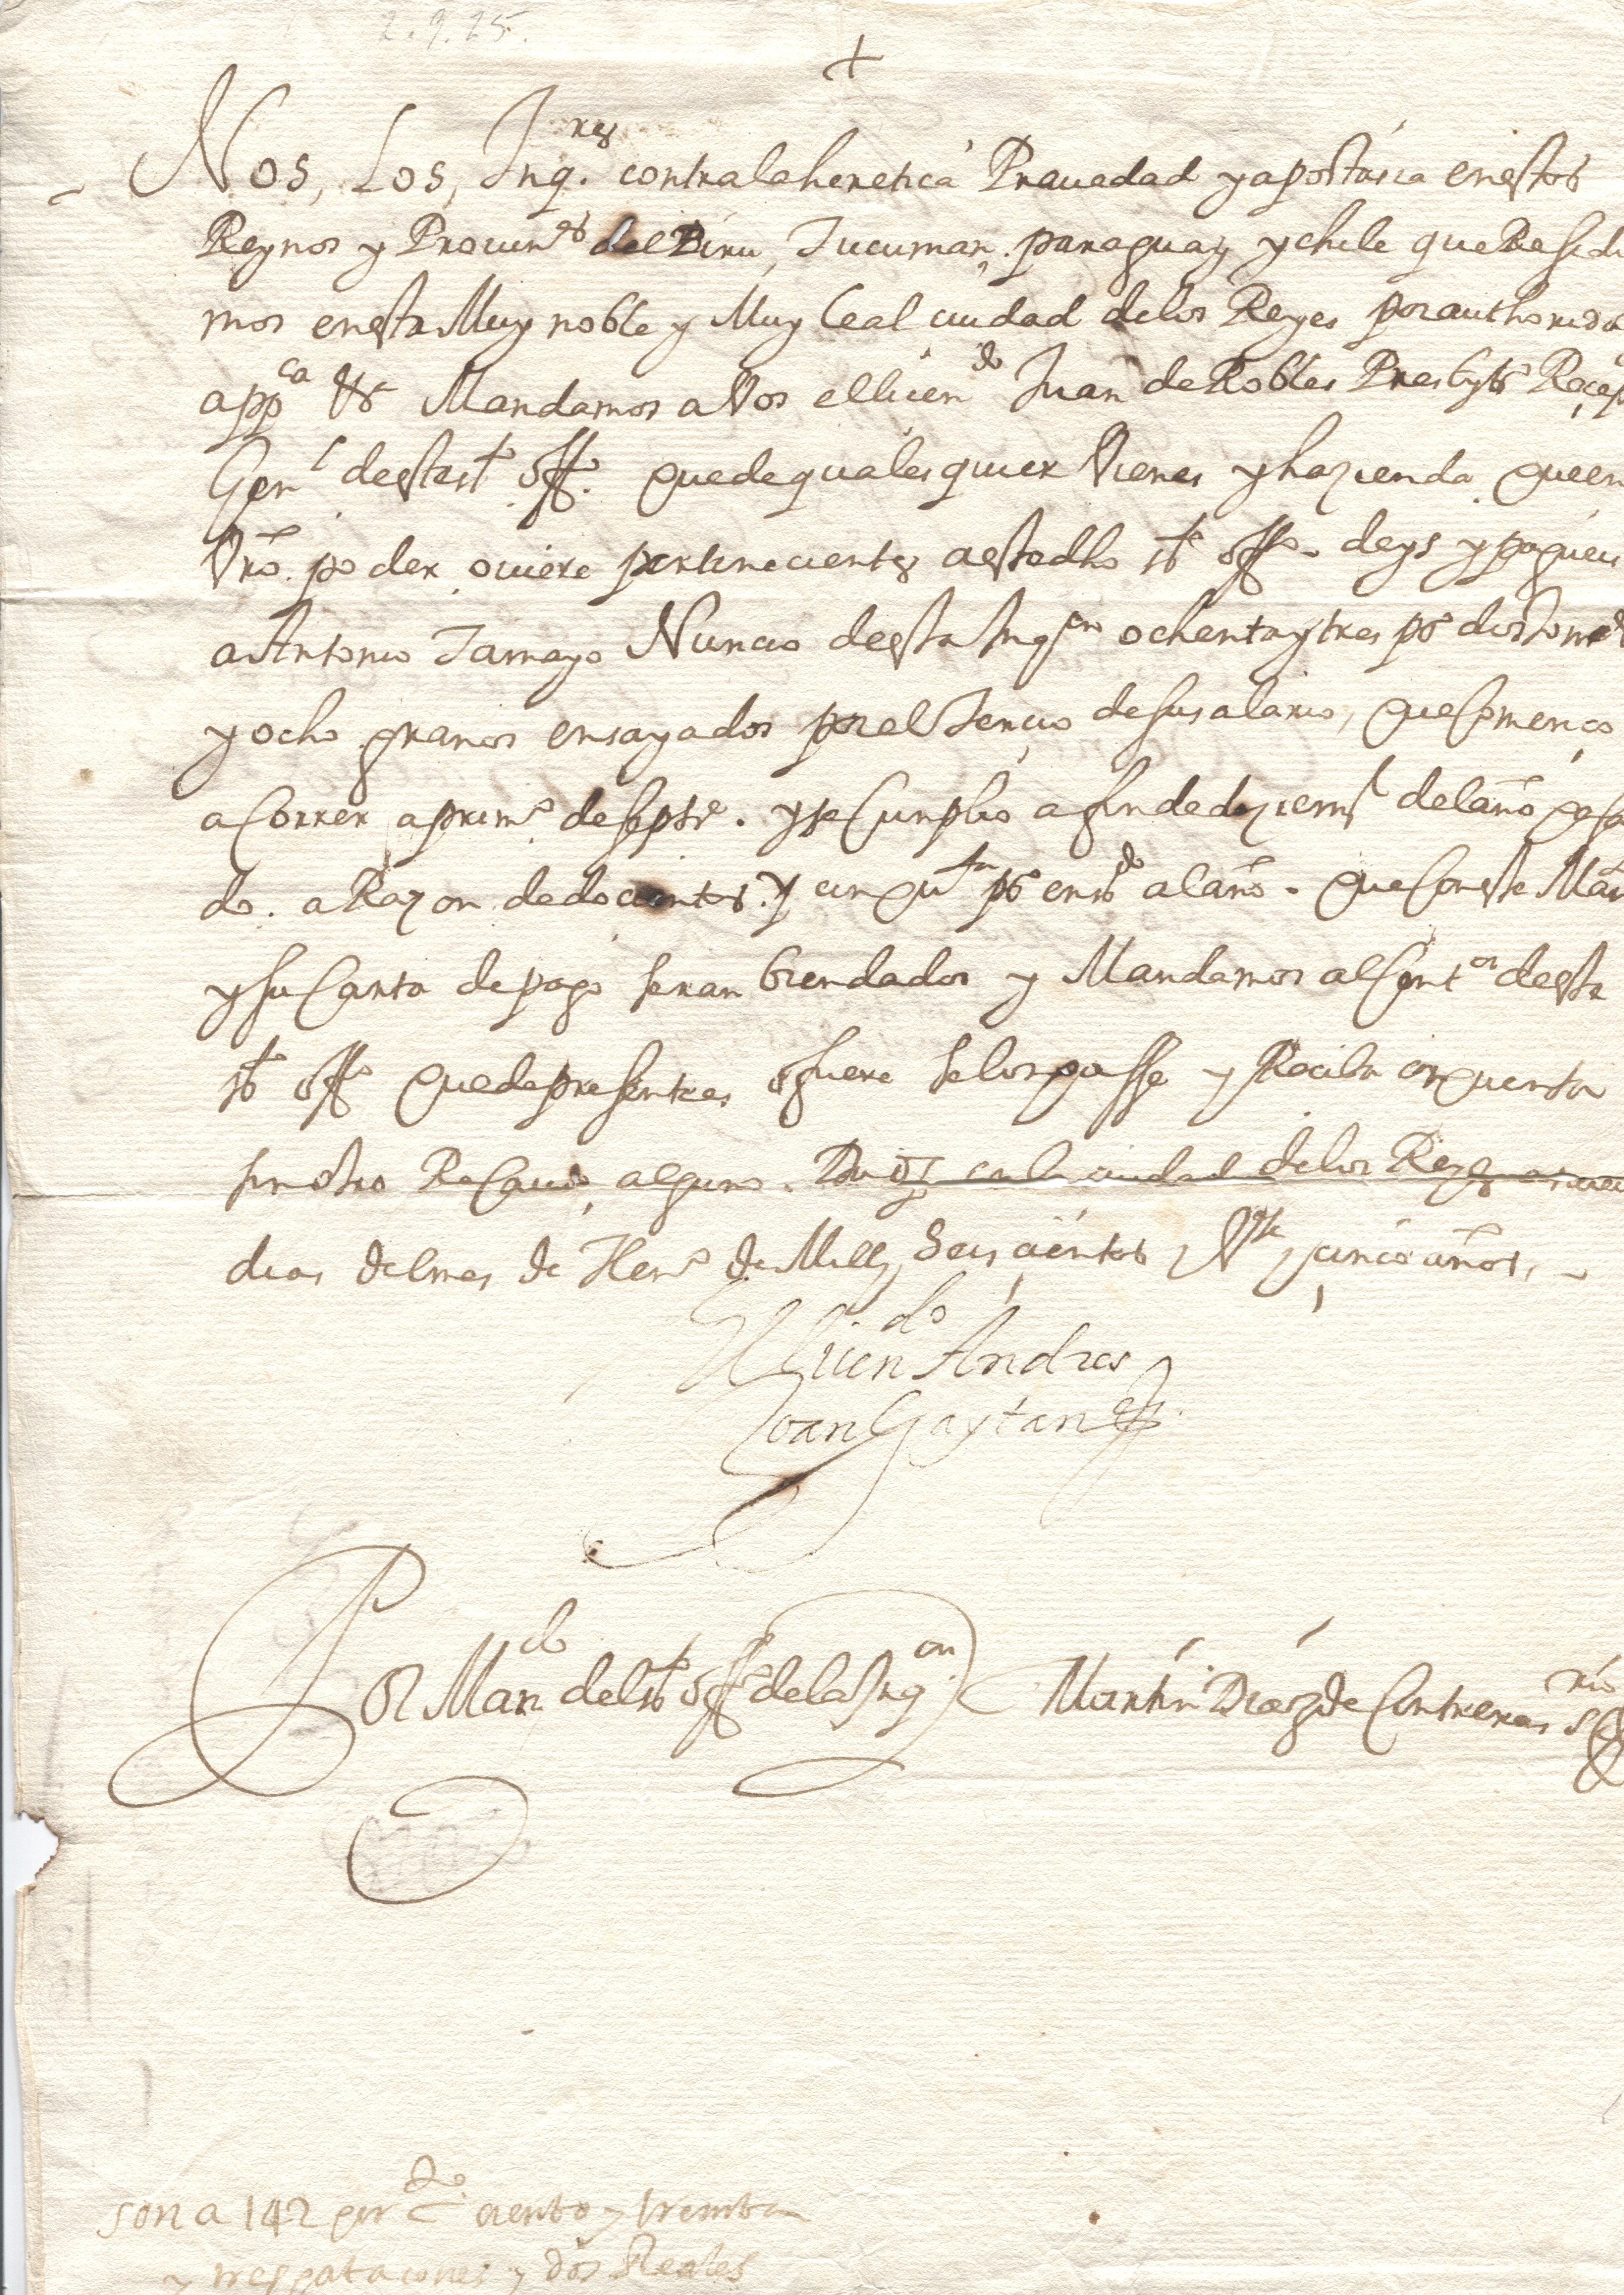 2.9.25.
+
Nos, Los, Inq.res contra la heretica Pravedad y apostasia en estos
Reynos y Provin.as del Piru, Tucuman, paraguay y chile que Resedi
mos en esta Muy noble y Muy leal ciudad de los Reyes por authorida
app.ca &.a Mandamos a Vos el licen.do Juan de Robles Presbyt.o Recep
Gen.l deste s.to off.o que de quales quier Vienes y hazienda que en
Vro. poder oviere pertenecientes a este dho s.to off.o deys y pagueis
a Antonio Tamayo Nuncio desta Inq.on ochenta y tres p.os dos tom.es
y ocho granos ensayados por el Tercio de su salario, que Començo
a Correr a prim.o de septr.e y se Cunplio a fin de diziem.e del año pasa
do. a Razon de docientos y cinqu.ta p.os ens.do al año. que Con este Man
y su Carta de pago seran bien dados y Mandamos al Cont.or deste
s.to off.o que de presente es o fuere se los passe y Reciba en quenta
sin otro Recaudo alguno. en la ciudad de los Reyes
dias del mes de Hen.o de Mill y Seis cientos y V.te y cinco años,
El licen.do Andres
Joan Gaytan
Por Man.do del s.to off.o de la Inq.on Martin Diaz de Contreras s.rio
son a 142 por c.o ciento y treinta
y tres patacones y dos Reales